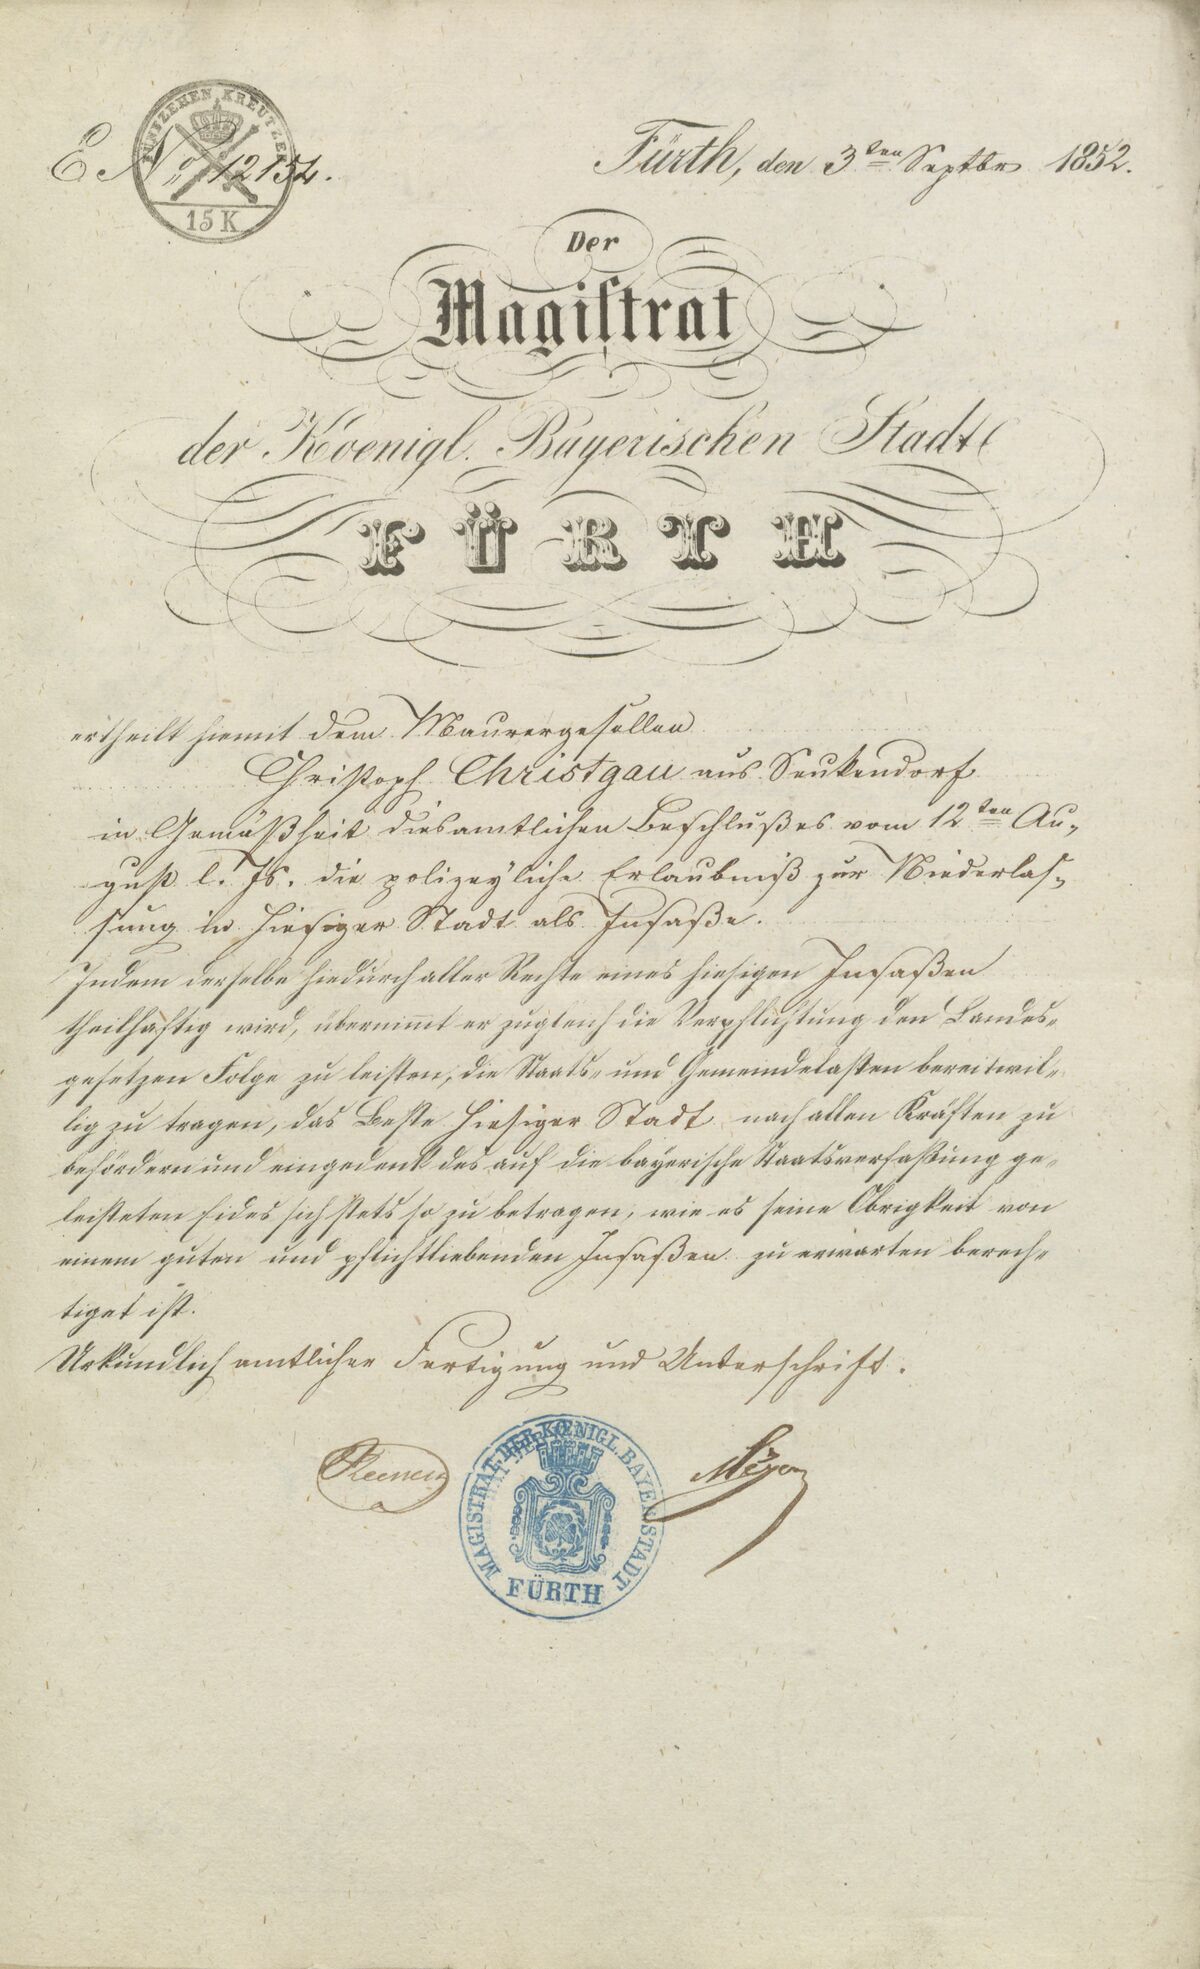 FÜNFZEHEN KREUTZER
15 K
E. No. 12154.
Fürth, den 3ten Septbr 1852.
Der
Magistrat
der Koenigl. Bayerischen Stadt
FÜRTH
ertheilt hiemit dem Maurergesellen
Christoph Christgau aus Seukendorf
in Gemäßheit diesamtlichen Beschlußes vom 12ten Au-
gust l. Js. die polizeyliche Erlaubniß zur Niederlas-
sung in hiesiger Stadt als Insaße.
Indem derselbe hiedurch aller Rechte eines hiesigen Insaßen
theilhaftig wird, übernimmt er zugleich die Verpflichtung den Landes-
gesetzen Folge zu leisten, die Staats- und Gemeindelasten bereitwil-
lig zu tragen, das Beste hiesiger Stadt nach allen Kräften zu
befördern und eingedenk des auf die bayerische Staatsverfaßung ge-
leisteten Eides sich stets so zu betragen, wie es seine Obrigkeit von
einem guten und pflichtliebenden Insaßen zu erwarten berech-
tiget ist.
Urkundlich amtlicher Fertigung und Unterschrift.
MAGISTRAT DER KŒNIGL. BAYER. STADT
FÜRTH